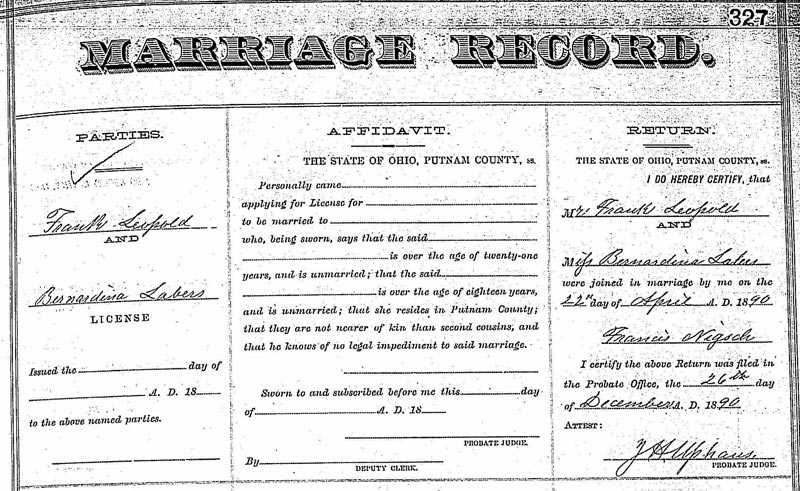 327
MARRIAGE RECORD.
PARTIES.
Frank Leopold
AND
Bernardina Labers
LICENSE
Issued the day of
A. D. 18
to the above named parties.
AFFIDAVIT.
THE STATE OF OHIO, PUTNAM COUNTY, ss.
Personally came
applying for License for
to be married to
who, being sworn, says that the said
is over the age of twenty-one
years, and is unmarried; that the said
is over the age of eighteen years,
and is unmarried; that she resides in Putnam County;
that they are not nearer of kin than second cousins, and
that he knows of no legal impediment to said marriage.
Sworn to and subscribed before me this day
of A. D. 18
PROBATE JUDGE.
By
DEPUTY CLERK.
RETURN.
THE STATE OF OHIO, PUTNAM COUNTY, ss.
I DO HEREBY CERTIFY, that
Mr. Frank Leopold
AND
Miss Bernardina Labers
were joined in marriage by me on the
22nd day of April A. D. 1890
Francis Nigsch
I certify the above Return was filed in
the Probate Office, the 26th day
of December A. D. 1890
ATTEST:
PROBATE JUDGE.